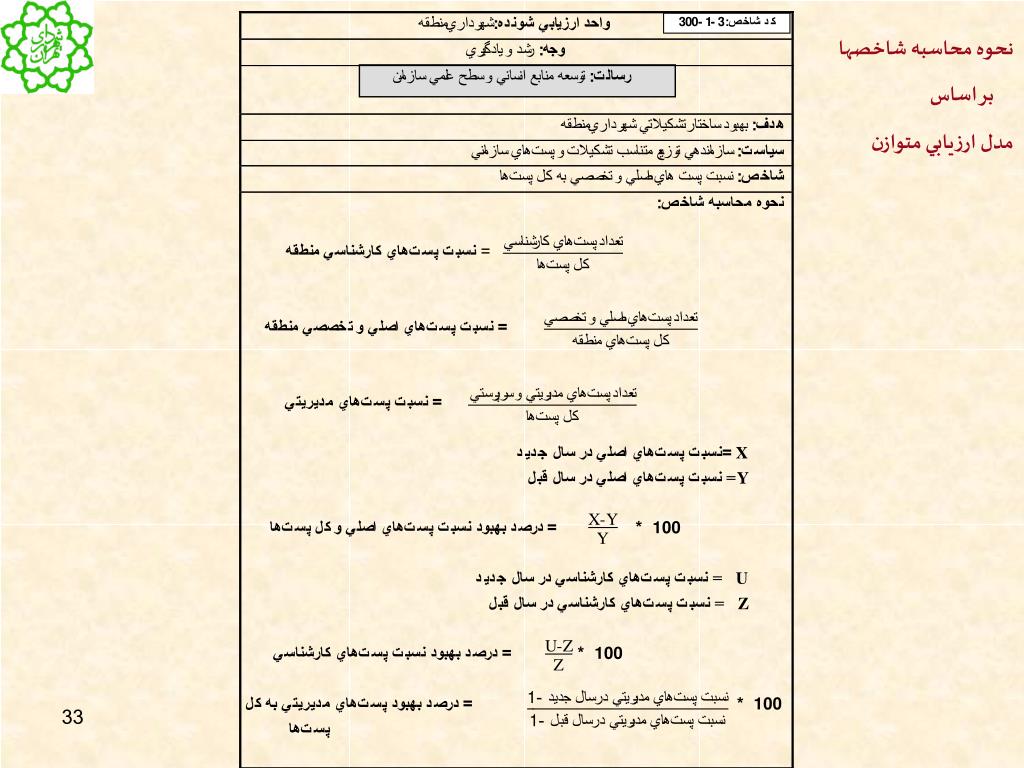 نحوه محاسبه شاخصها
بر اساس
مدل ارزيابي متوازن
كد شاخص: 3 -1 -300
واحد ارزيابي شونده: شهرداري منطقه
وجه: رشد و يادگيري
رسالت: توسعه منابع انساني و سطح علمي سازمان
هدف: بهبود ساختار تشكيلاتي شهرداري منطقه
سياست: سازماندهي توزيع متناسب تشكيلات و پست‌هاي سازماني
شاخص: نسبت پست هاي اصلي و تخصصي به كل پست‌ها
نحوه محاسبه شاخص:
تعداد پست‌هاي كارشناسي
كل پست‌ها
= نسبت پست‌هاي كارشناسي منطقه
تعداد پست‌هاي اصلي و تخصصي
كل پست‌هاي منطقه
= نسبت پست‌هاي اصلي و تخصصي منطقه
تعداد پست‌هاي مديريتي و سرپرستي
كل پست‌ها
= نسبت پست‌هاي مديريتي
X =نسبت پست‌هاي اصلي در سال جديد
Y= نسبت پست‌هاي اصلي در سال قبل
X-Y
Y
* 100
= درصد بهبود نسبت پست‌هاي اصلي و كل پست‌ها
U = نسبت پست‌هاي كارشناسي در سال جديد
Z = نسبت پست‌هاي كارشناسي در سال قبل
U-Z
Z
* 100
= درصد بهبود نسبت پست‌هاي كارشناسي
نسبت پست‌هاي مديريتي درسال جديد -1
نسبت پست‌هاي مديريتي درسال قبل -1
* 100
= درصد بهبود پست‌هاي مديريتي به كل
پست‌ها
33